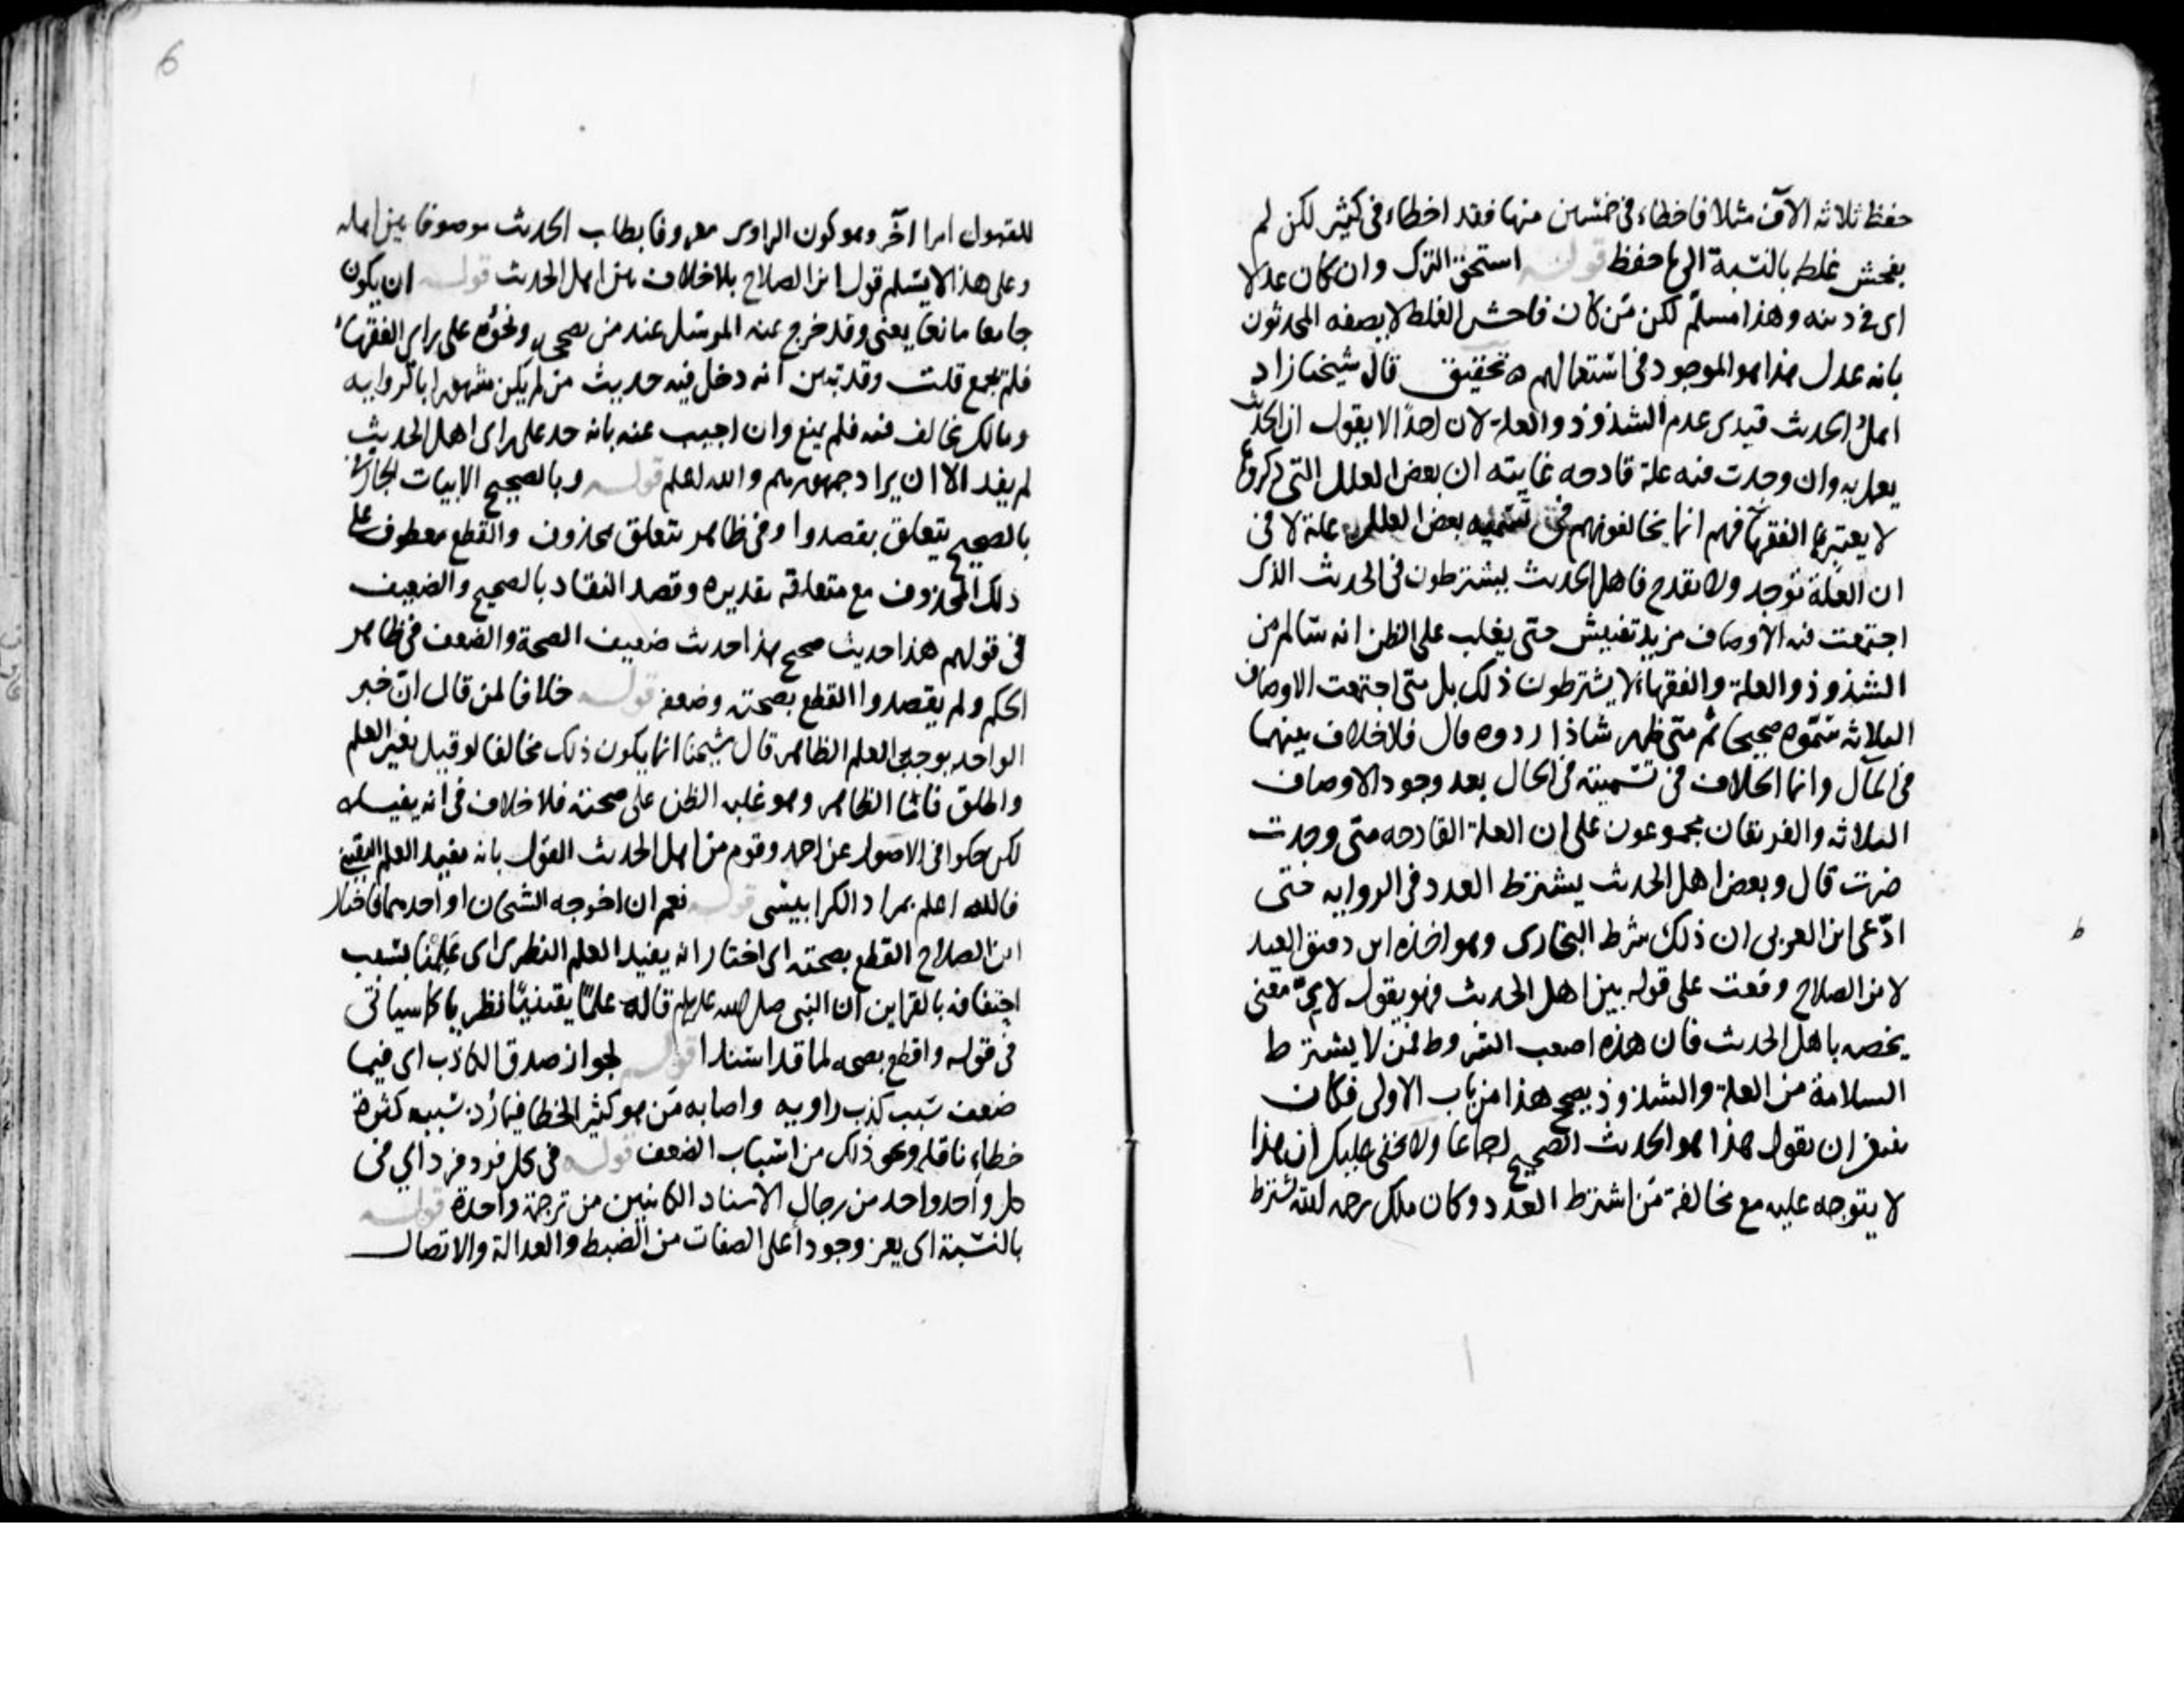 حفظ ثلاثه الآف مثلا فاخطاء في خمسين منها فقد اخطاء في كثير لكن لم
يفحش غلطه بالنسبة الى ما حفظ قوله استحق الترك وان كان عدلا
اى فى دينه وهذا مسلم لكن من كان فاحش الغلط لا يصفه المحدثون
بانه عدل هذا هو الموجود فى استعمالهم ه تحقيق قال شيخنا زاد
اهل الحديث قيدى عدم الشذوذ والعلة لان احدًا لا يقول ان الحديث
يعمل به وان وجدت فيه علة قادحه غايته ان بعض العلل التى ذكروها
لا يعتبرها الفقهآ فهم انما يخالفونهم فى تسميه بعض العلل علة لا فى
ان العلة توجد ولا تقدح فاهل الحديث يشترطون فى الحديث الذى
اجتمعت فيه الاوصاف مزيد تفتيش حتى يغلب على الظن انه سالم من
الشذوذ والعلة والفقهاء لا يشترطون ذلك بل متى اجتمعت الاوصاف
الثلاثه سموه صحيحا ثم متى ظهر شاذا ردوه قال فلا خلاف بينهما
فى المآل وانما الخلاف فى تسميته فى الحال بعد وجود الاوصاف
الثلاثه والفريقان مجموعون على ان العلة القادحه متى وجدت
ضرت قال وبعض اهل الحديث يشترط العدد فى الروايه حتى
ادّعى ابن العربى ان ذلك شرط البخارى ومواخذه ابن دقيق العيد
لابن الصلاح وقعت على قوله بين اهل الحديث فهو يقول لاىّ معنى
يخصه باهل الحديث فان هذه اصعب الشروط فمن لا يشترط
السلامة من العلة والشذوذ يصحح هذا من باب الاولى فكان
ينبغى ان يقول هذا هو الحديث الصحيح اجماعا ولا يخفى عليك ان هذا
لا يتوجه عليه مع مخالفة من اشترط العدد وكان ملك رحمه الله يشترط
6
للقبول امرا آخر وهو كون الراوى معروفا بطلب الحديث موصوفا بين اهله
وعلى هذا لا يسلم قول ابن الصلاح بلا خلاف بين اهل الحديث قوله ان يكون
جامعا مانعا يعنى وقد خرج عنه المرسل عند من يصححه ونحوه على راى الفقهاء
فلم يجمع قلت وقد تبين انه دخل فيه حديث من لم يكن مشهورا بالروايه
ومالك يخالف فيه فلم يمنع وان اجيب عنه بانه حد على راى اهل الحديث
لم يفد الا ان يراد جمهورهم والله اعلم قوله وبالصحيح الابيات الجار فى
بالصحيح يتعلق بقصدوا وفى ظاهر يتعلق بمحذوف والقطع معطوف على
ذلك المحذوف مع متعلقه تقديره وقصد النقاد بالصحيح والضعيف
فى قولهم هذا حديث صحيح هذا حديث ضعيف الصحة والضعف فى ظاهر
الحكم ولم يقصدوا القطع بصحته وضعفه قوله خلافا لمن قال ان خبر
الواحد يوجب العلم الظاهر قال شيخنا انما يكون ذلك مخالفا لو قيل بغير العلم
واطلق فاما الظاهر وهو غلبه الظن على صحته فلا خلاف فى انه يفيده
لكن حكوا فى الاصول عن احمد وقوم من اهل الحديث القول بانه مفيد العلم اليقين
فالله اعلم بمراد الكرابيسى قوله نعم ان اخرجه الشيخان او احدهما فاختار
ابن الصلاح القطع بصحته اى اختار انه يفيد العلم النظرى اى علمنا بسبب
احتفافه بالقراين ان النبى صلى الله عليه وسلم قاله علمًا يقينيًا نظريا كما سياتى
فى قوله واقطع بصحه لما قد اسندا قوله لجواز صدق الكاذب اى فيما
ضعف بسبب كذب راويه واصابه من هو كثير الخطا فيما رد بسببه كثرة
خطاء ناقله ونحو ذلك من اسباب الضعف قوله فى كل فرد فرد اي فى
كل واحد واحد من رجال الاسناد الكائنين من ترجمة واحدة قوله
بالنسبة اى يعز وجود اعلى الصفات من الضبط والعدالة والاتصال